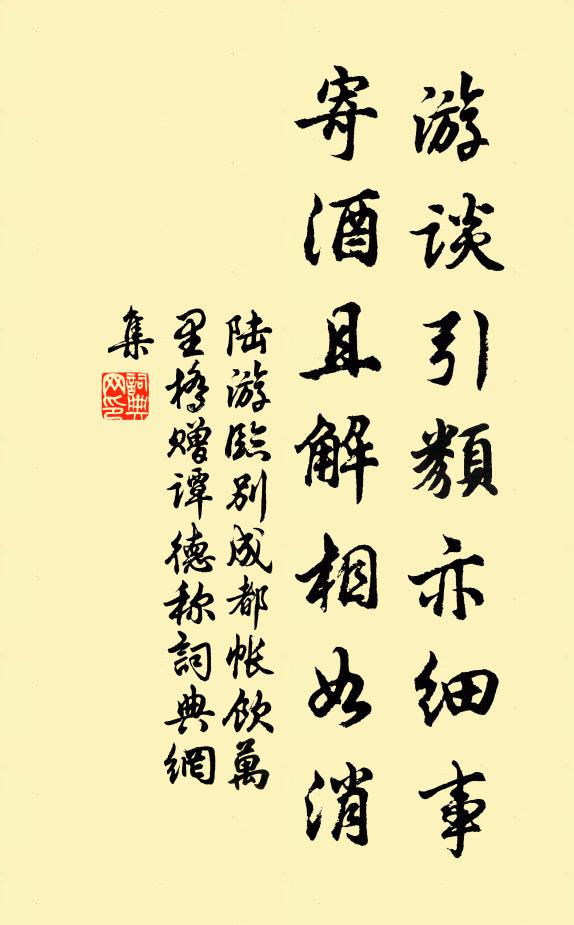 游谈引類亦细事
寄酒且解相如消
陆游臨别成都帐饮萬
里橋赠谭德称詞典網
集
詞典
网印